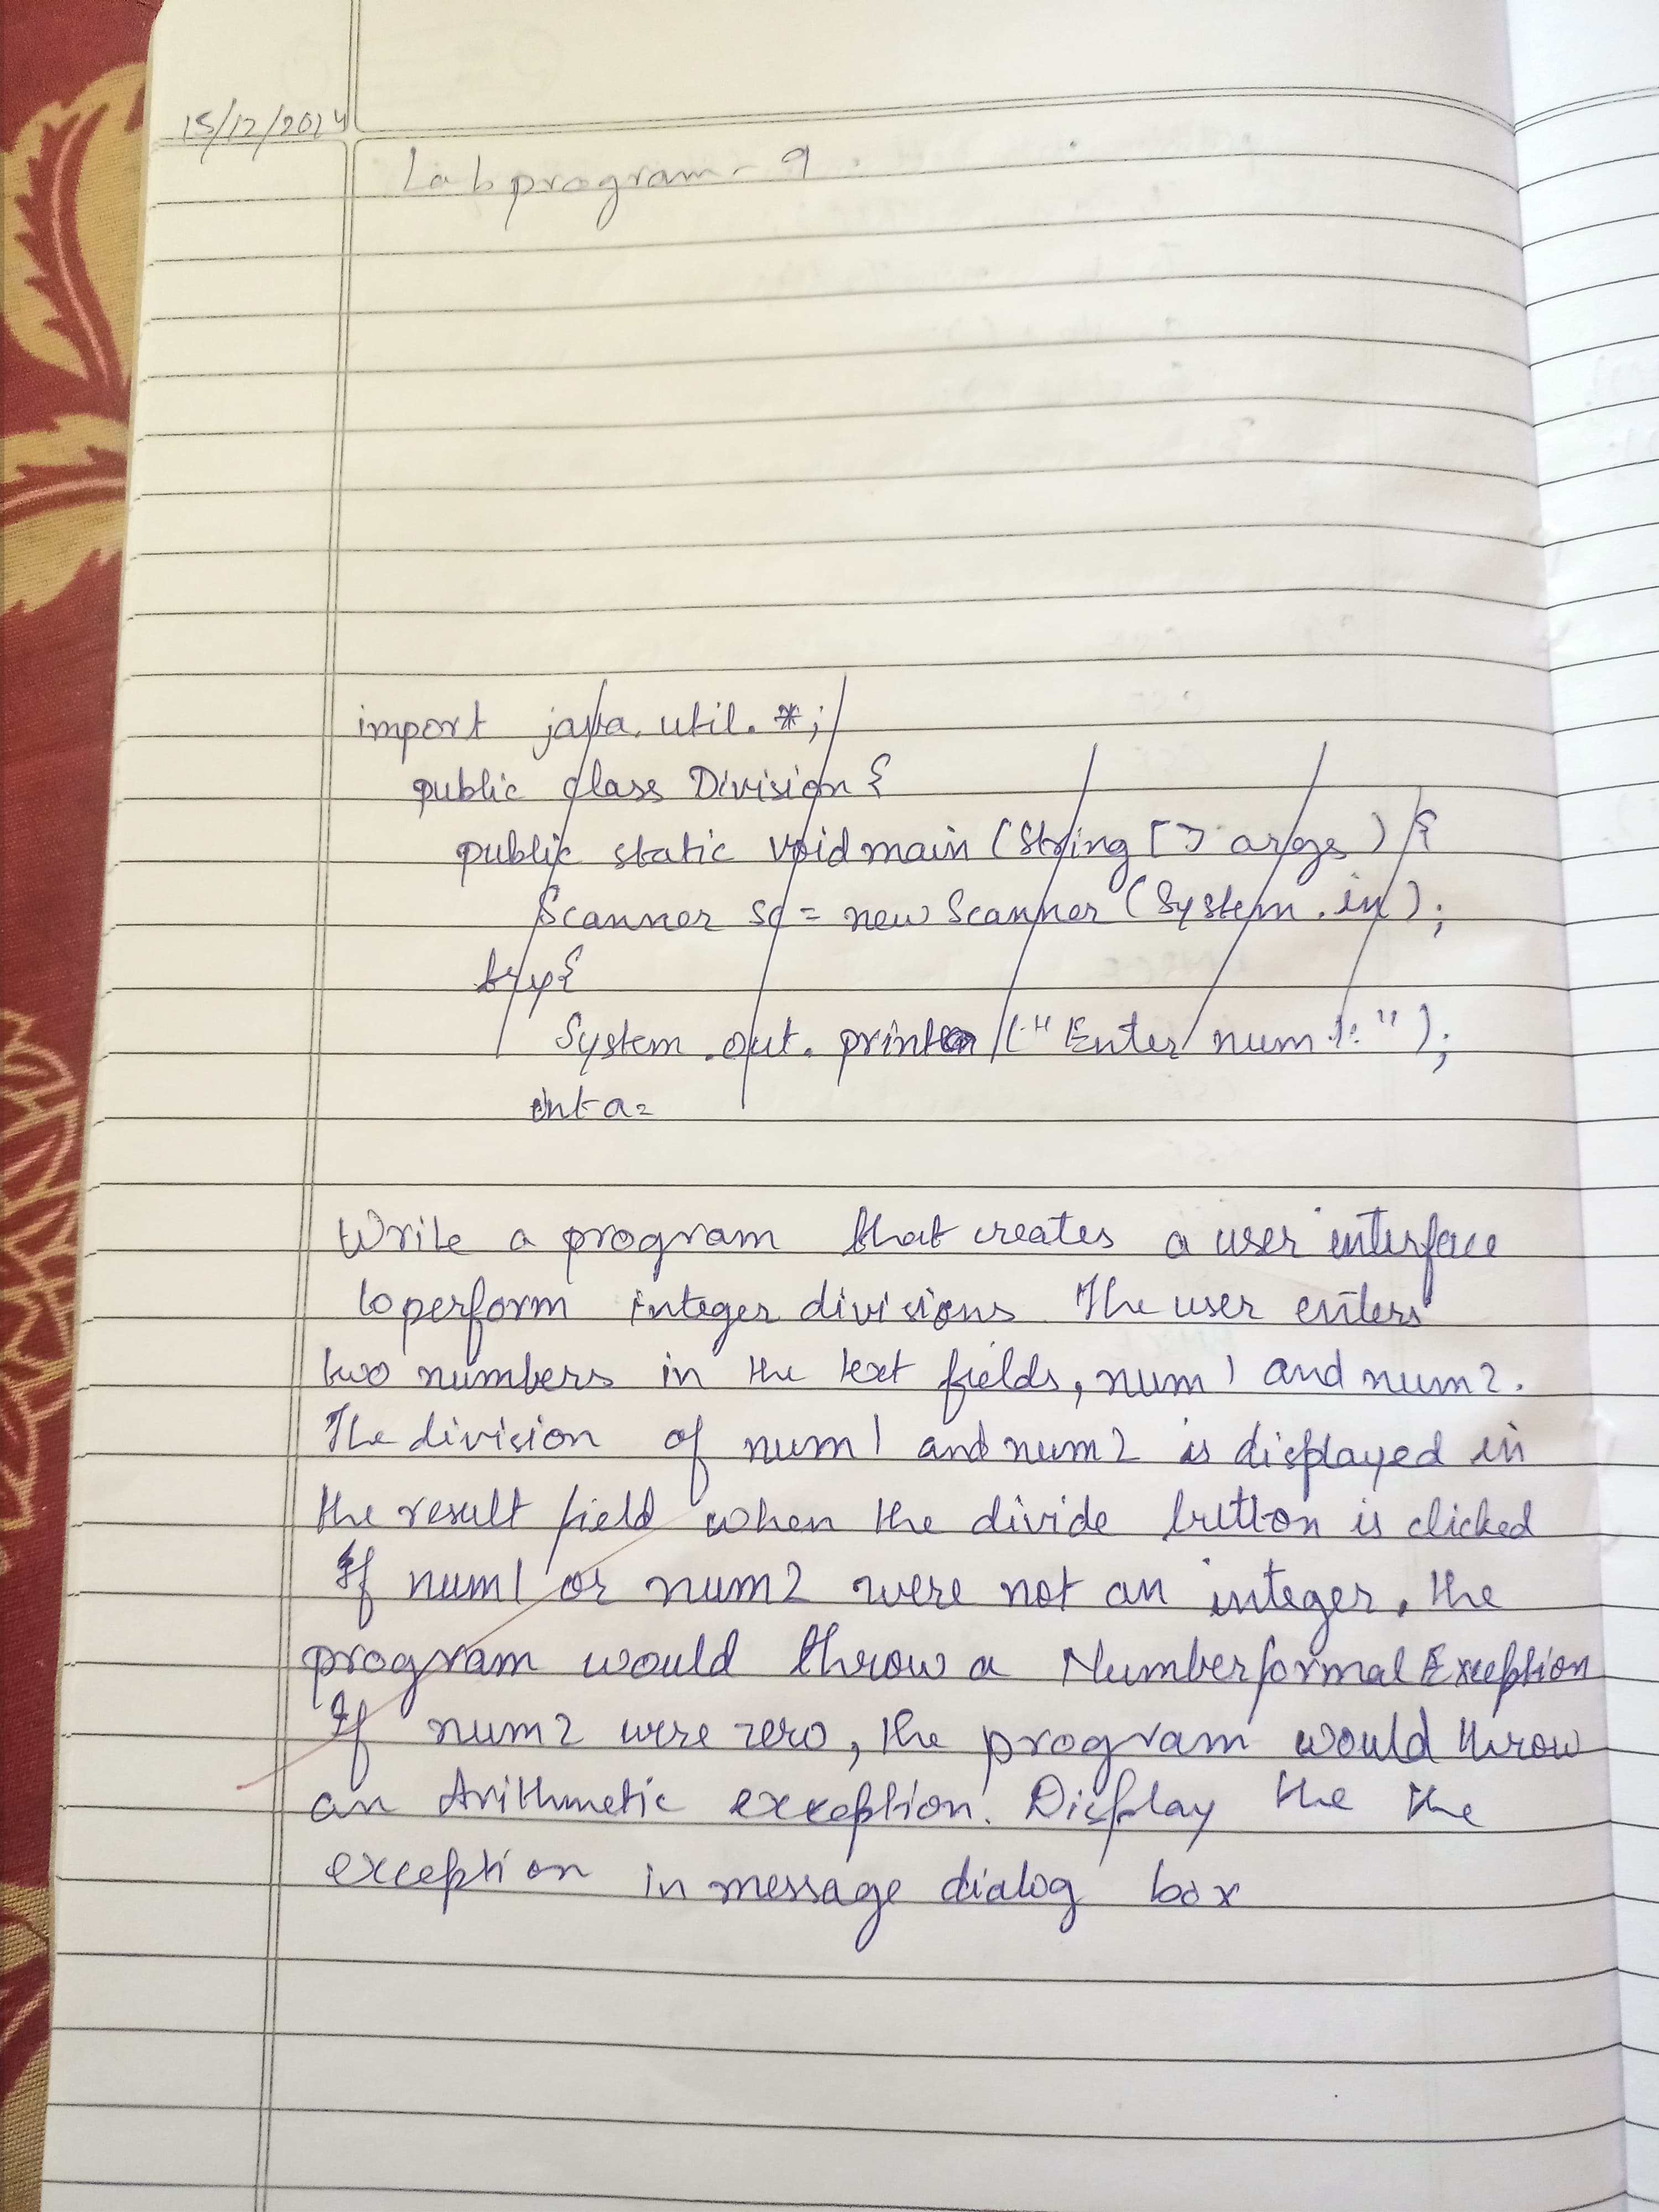 15/12/2024
Lab program - 9
import java.util.*;
public class Division {
public static void main (String [] args) {
Scanner sc = new Scanner (System.in);
try {
System.out.println ("Enter num 1: ");
int a =
Write a program that creates a user interface
to perform integer divisions. The user enters
two numbers in the text fields, num1 and num2.
The division of num1 and num2 is displayed in
the result field when the divide button is clicked
If num1 or num2 were not an integer, the
program would throw a NumberformatException
If num2 were zero, the program would throw
an Arithmetic exception. Display the the
exception in message dialog box